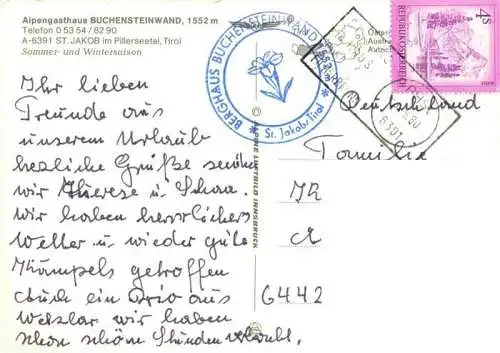 Alpengasthaus BUCHENSTEINWAND, 1552 m
Telefon 0 53 54 / 82 90
A-6391 ST. JAKOB im Pillerseetal, Tirol
Sommer- und Wintersaison
BERGHAUS BUCHENSTEINWAND 1552 m
St. Jakob/Tirol
4S
REPUBLIK ÖSTERREICH
Deutschland
Ihr lieben
Freunde aus
unserem Urlaub
herzliche Grüße senden
wir Therese u.
wir haben herrliches
Wetter u wieder gute
Kumpels getroffen
Auch ein Trio aus
Wetzlar wir haben
schon schöne Stunden verlebt.
Familie
6442
ALPINE LUFTBILD INNSBRUCK